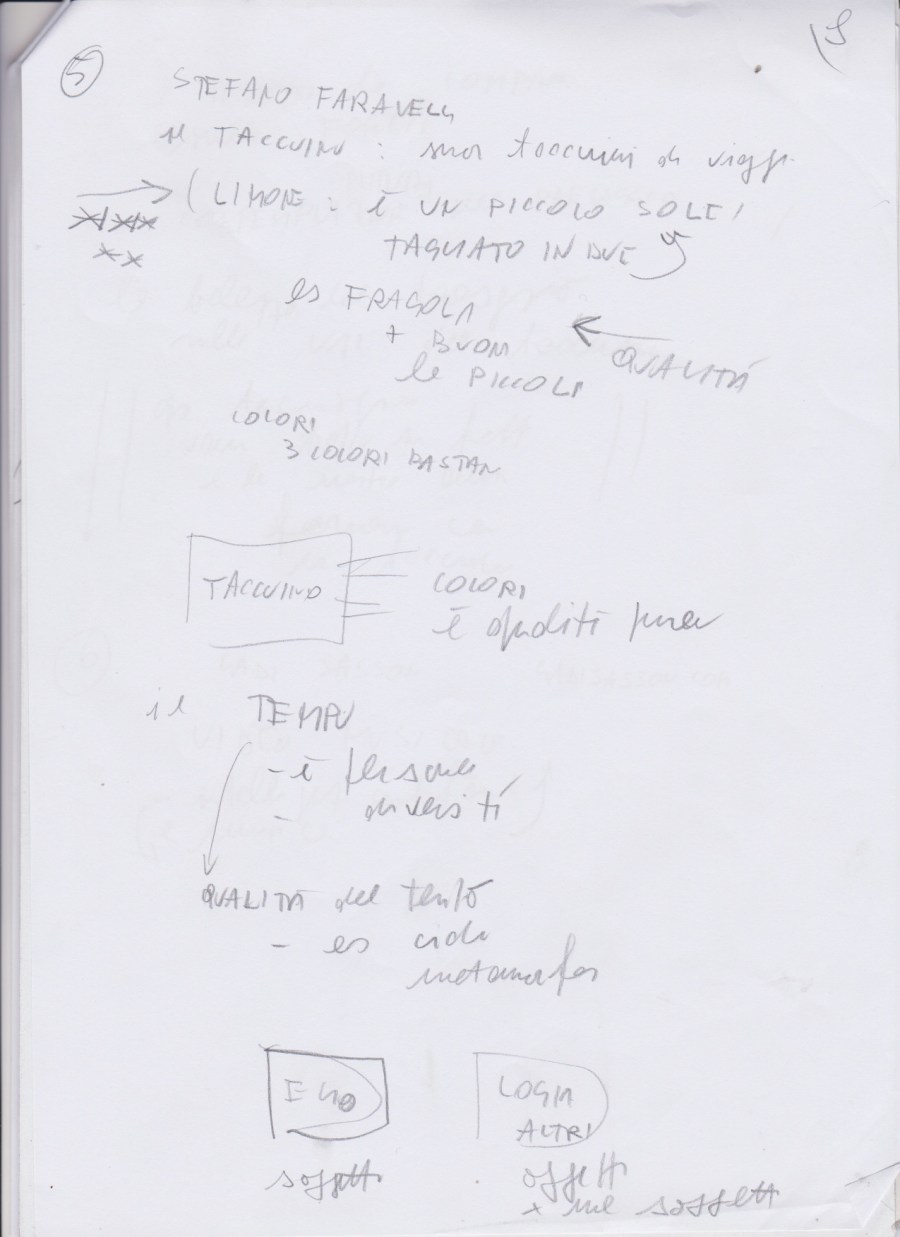 5
STEFANO FARAVELLI
il TACCUINO : suoi taccuini di viaggi
( LIMONE : È UN PICCOLO SOLE
TAGLIATO IN DUE
es FRAGOLA
+ BUONI
le PICCOLI
QUALITÀ
COLORI
3 COLORI BASTAN
TACCUINO
COLORI
è qualità pura
il TEMPO
- è persona
- diversità
QUALITÀ del tempo
- es ciclo
metamorfosi
EGO
LOGIA
ALTRI
soggetti
oggetti
x me soggetti